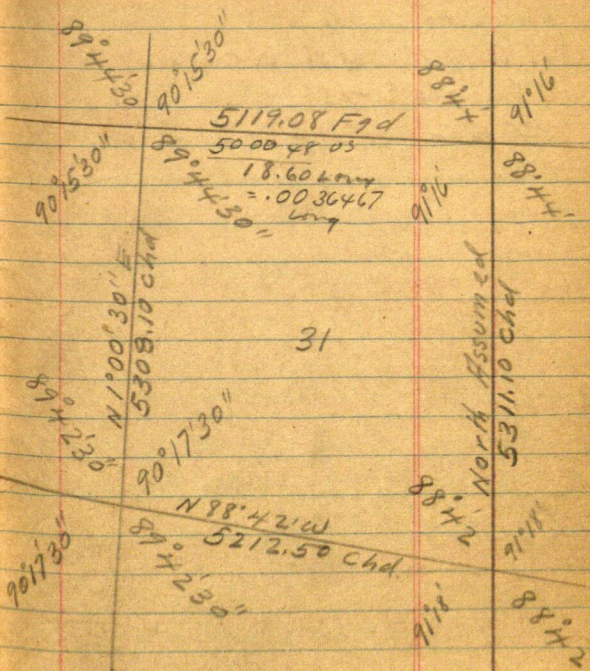 89°44'30
90°15'30"
88°44'
91°16'
5119.08 Fgd
5000 48 os
18.60 Long
= .0036467
Long
90°15'30"
89°44'30"
91°16'
88°44'
N 1°00'30" E
5308.10 chd
31
North Assumed
5311.10 chd
89°42'30"
90°17'30"
88°42'
91°18'
N 88°42' W
5212.50 Chd.
90°17'30"
89°42'30"
91°18'
88°42